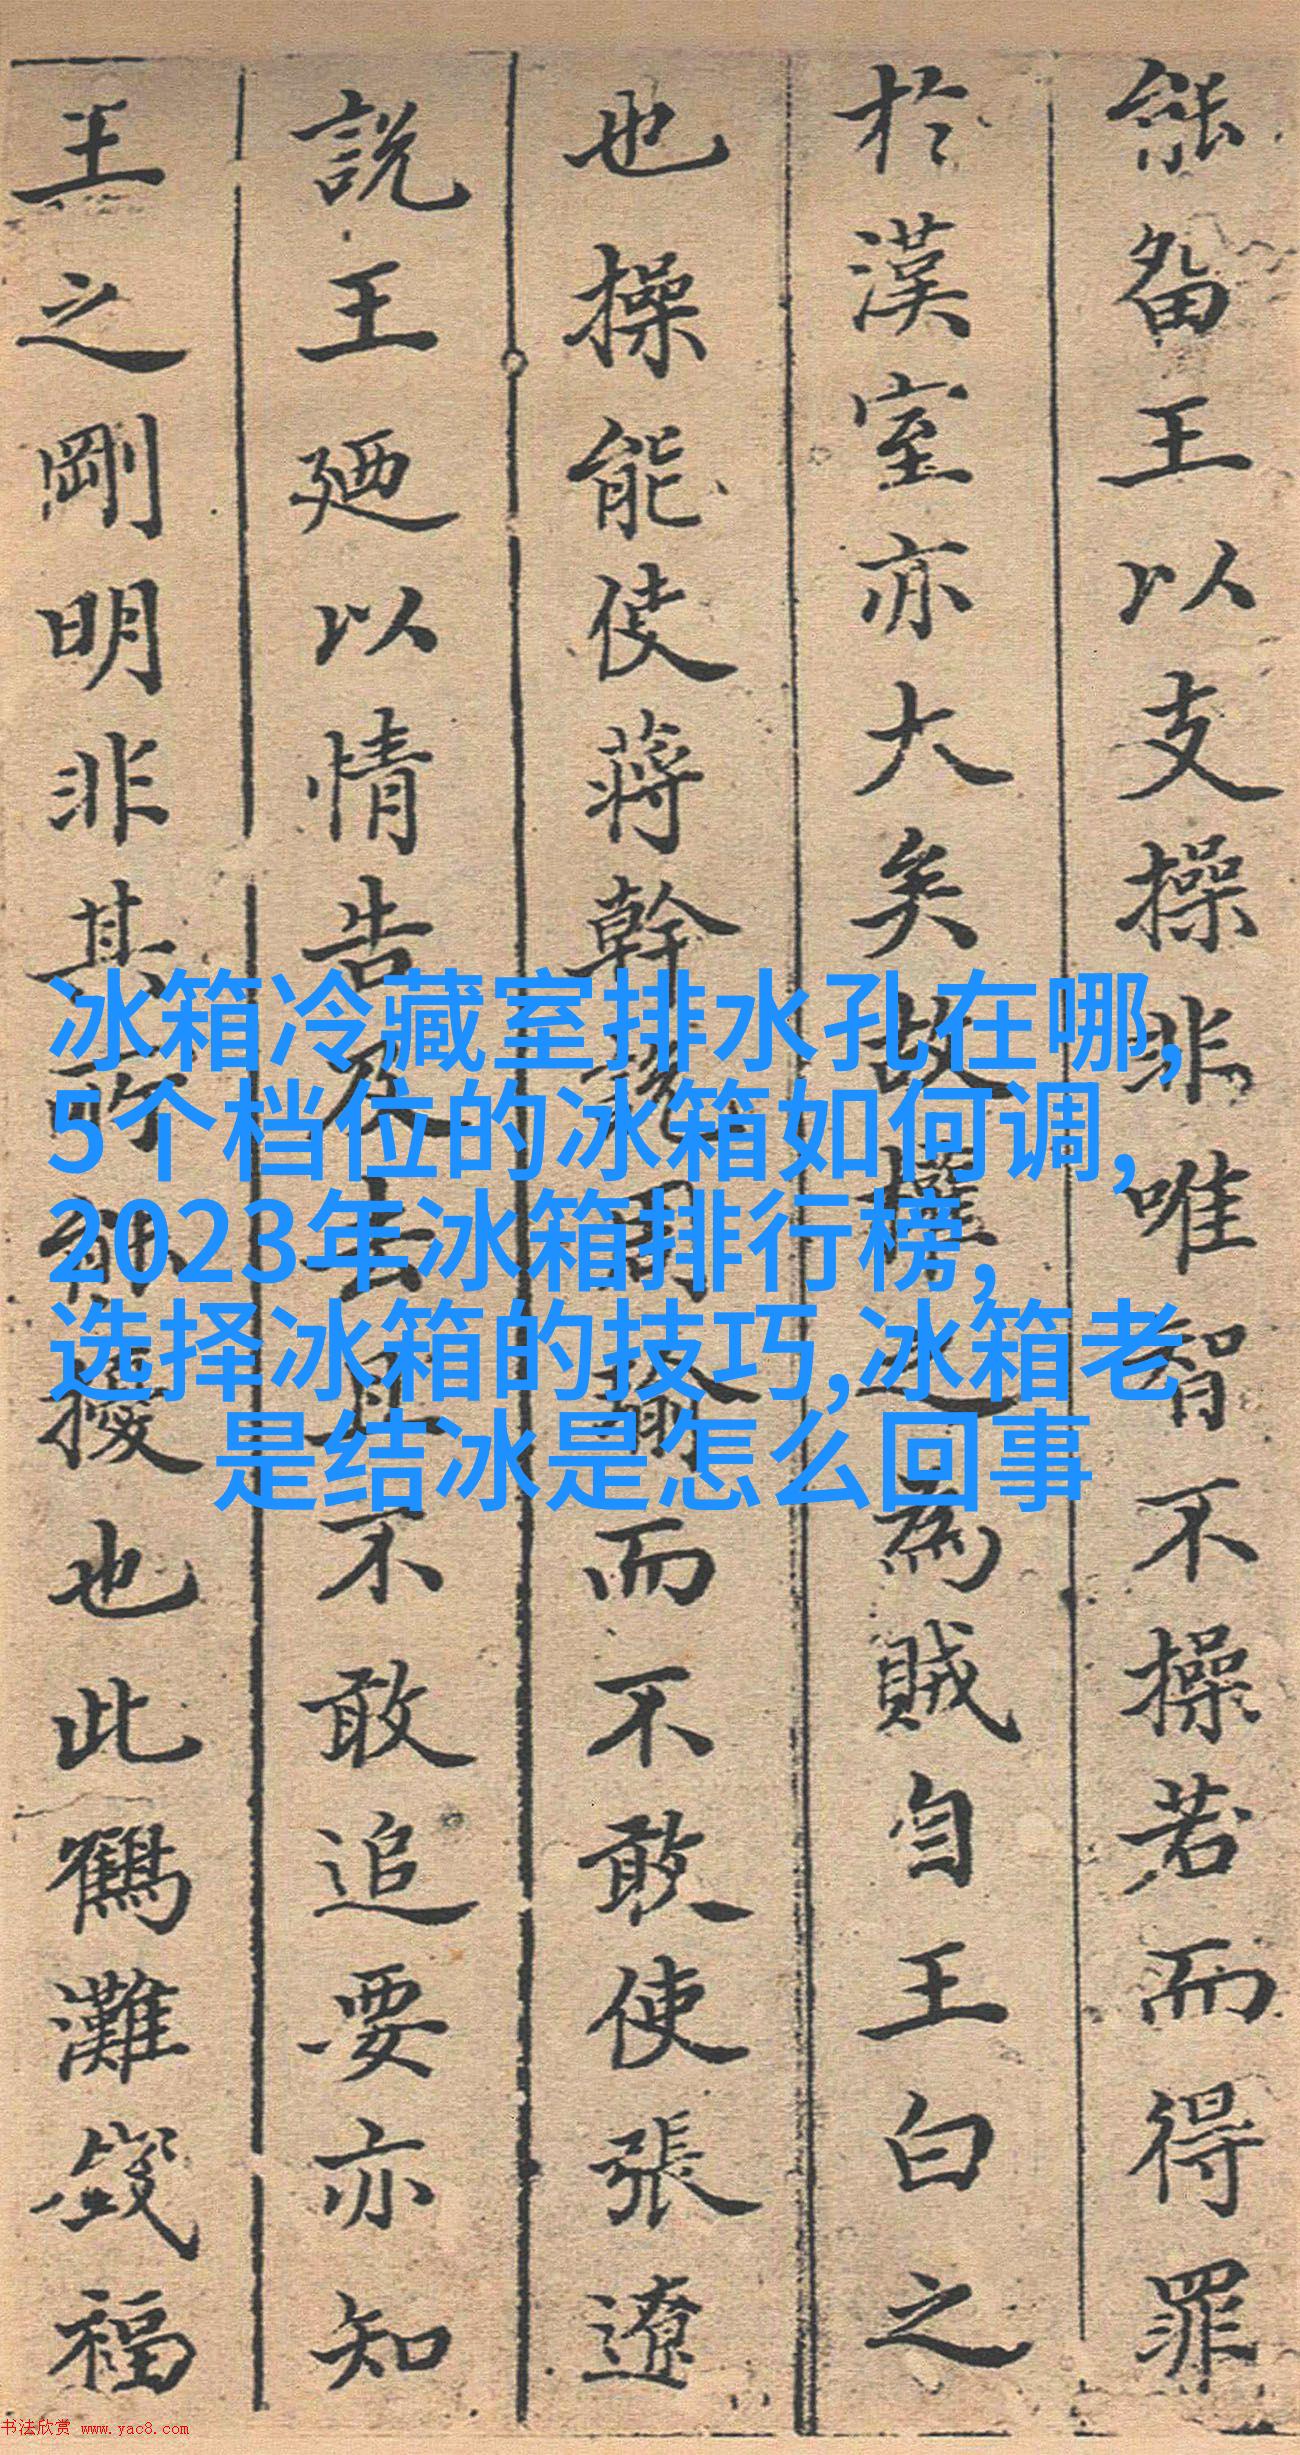 能畱王以支操非唯智不操若而得罪
於漢室亦大矣故權之為賊王白之
也操能使蔣幹說周瑜而不敢使張遼
說王廼以情告及去且不敢追要亦知
王之剛明非其所能也此鶴灘錢福
冰箱冷藏室排水孔在哪,
5个档位的冰箱如何调,
2023年冰箱排行榜,
选择冰箱的技巧,冰箱老
是结冰是怎么回事
书法欣赏 www.yac8.com